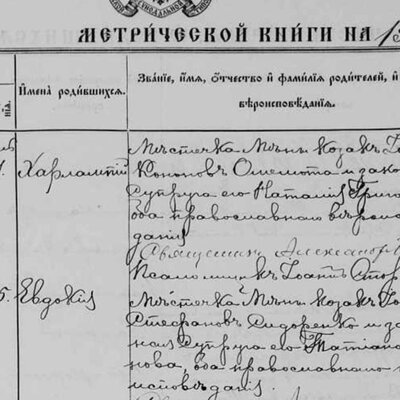 МЕТРИ́ЧЕСКОЙ КНИ́ГИ НА 1
И҆́мена̀ роди́вшихся.
Зва́нїе, и҆́мя, ѻ҆́тчество и҆ фами́лїя роди́телей, и҆
вѣроисповѣ́данїя.
нїя.
Харлампій
Мѣстечка козакъ
Кононовъ и зако
Супруга его Наталія Григо
оба православнаго вѣроис
данія
Священникъ Александръ
Псаломщикъ Іоаннъ
5. Евдокія
Мѣстечка козакъ
Стефановъ Сидоренко и за
ная супруга его Татіана
нова, оба православнаго
исповѣданія.